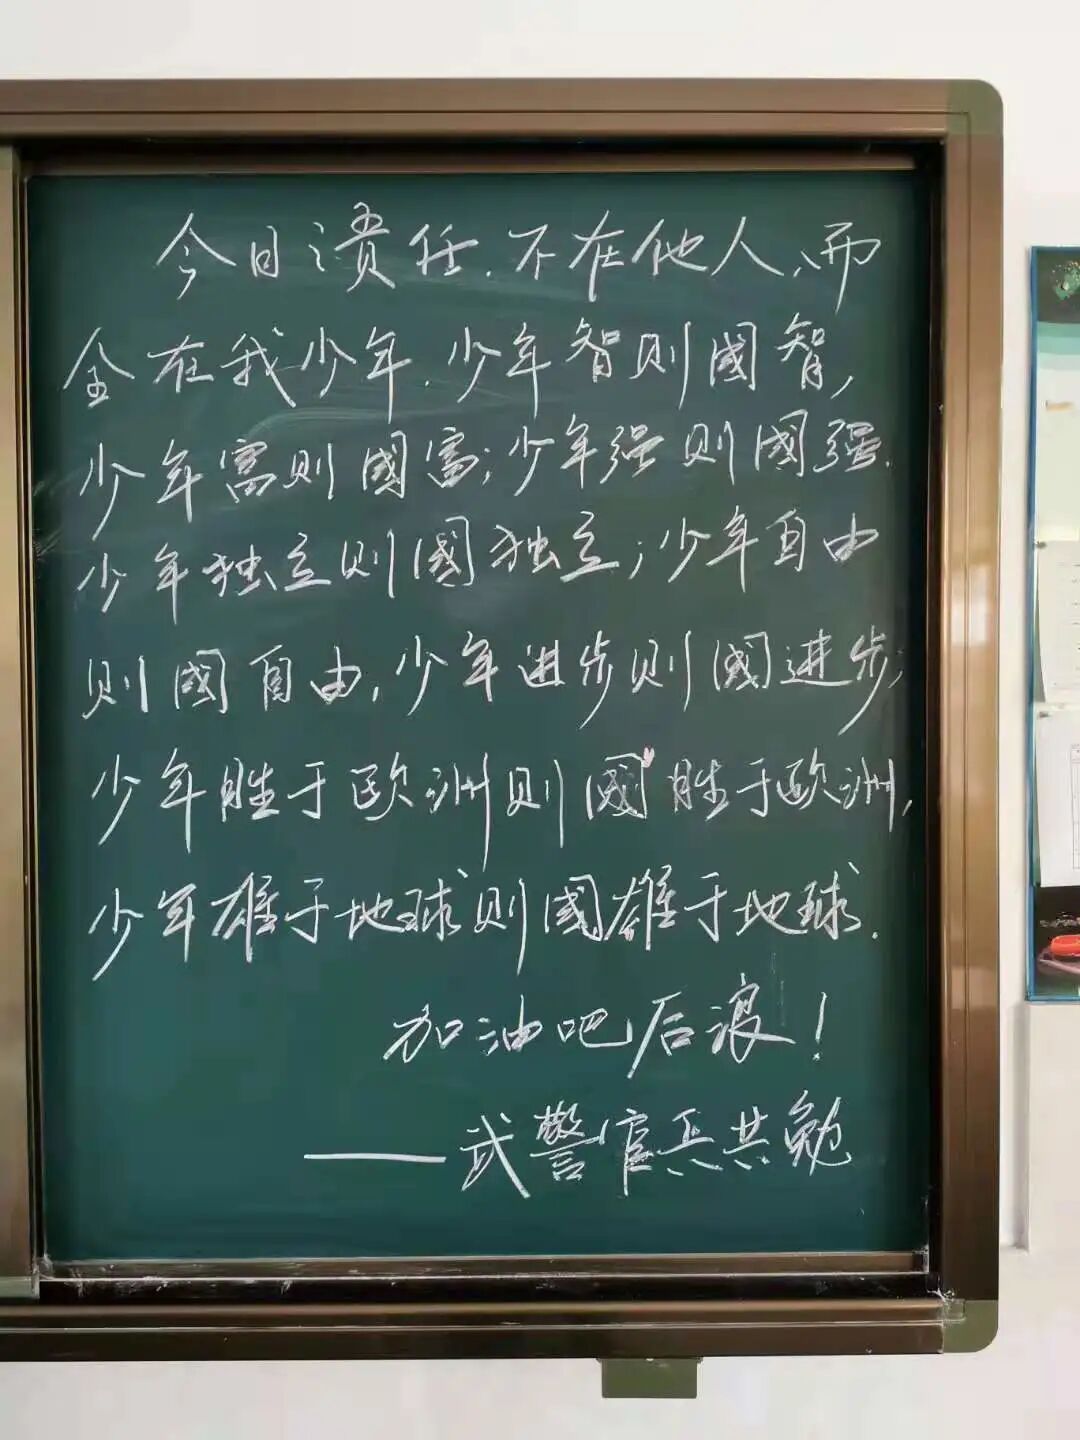 今日责任,不在他人,而
全在我少年.少年智则國智,
少年富则國富;少年强则國强.
少年独立则國独立;少年自由
则國自由,少年进步则國进步;
少年胜于欧洲则國胜于欧洲,
少年雄于地球则國雄于地球.
加油吧后浪!
——武警官兵共勉